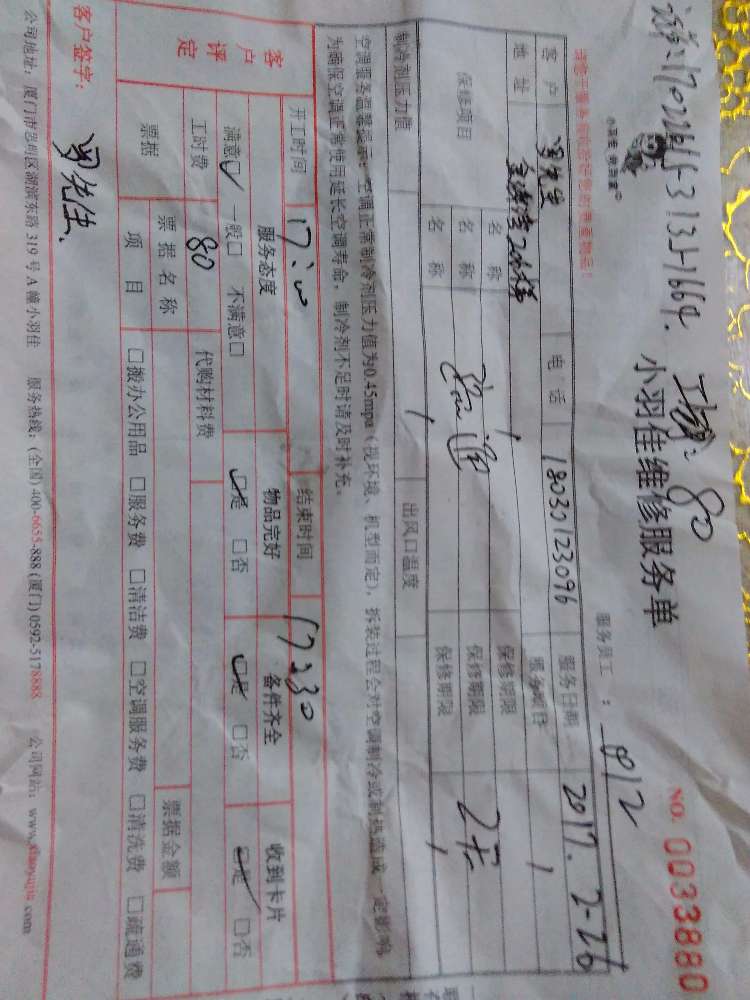 工费：80
小羽佳 家到家
小羽佳维修服务单
NO. 0033880
服务员工：812
客户 罗先生 电话 18030123096 服务日期 2017.2-26
地址 服务项目
保修项目 名称 保修期限
名称 保修期限
名称 保修期限
制冷剂压力值 出风口温度
空调服务温馨提示：空调正常制冷剂压力值为0.45mpa（视环境、机型而定），拆装过程会对空调制冷或制热造成一定影响
为确保空调正常使用延长空调寿命，制冷剂不足时请及时补充。
开工时间 17:00 结束时间 17:30
客户评定
服务态度 物品完好 备件齐全 收到卡片
满意□ 一般□ 不满意□ □是 □否 □是 □否 □是 □否
工时费 80 代购材料费
票据 票据名称 票据金额
项目 □搬办公用品 □服务费 □清洁费 □空调服务费 □清洗费 □疏通费
客户签字：罗先生
公司地址：厦门市思明区湖滨东路319号A幢小羽佳 服务热线：(全国) 400-6655-888 (厦门) 0592-5178888 公司网站：www.xiaoyujia.com